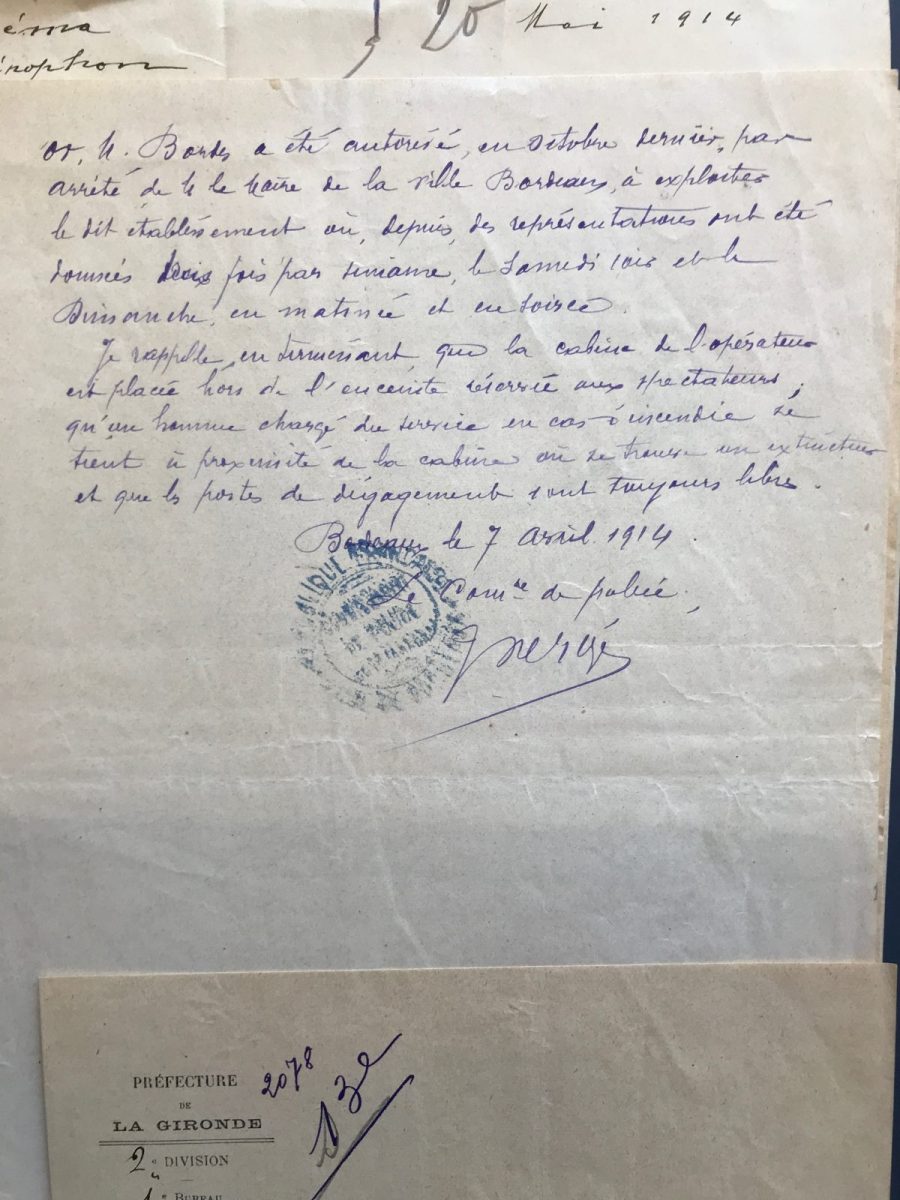 éma
20 Mai 1914
or, M. Bordes a été autorisé, en octobre dernier, par
arrêté de M le Maire de la ville Bordeaux, à exploiter
le dit établissement où, depuis, des représentations ont été
données trois fois par semaine, le Samedi soir et le
Dimanche, en matinée et en soirée.
Je rappelle, en terminant, que la cabine de l'opérateur
est placée hors de l'enceinte réservée aux spectateurs,
qu'un homme chargé du service en cas d'incendie se
tient à proximité de la cabine où se trouve un extincteur
et que les portes de dégagement sont toujours libres.
Bordeaux le 7 Avril 1914
Le Comre de police,
PRÉFECTURE
DE
LA GIRONDE
2078
13e
2e DIVISION
1er BUREAU